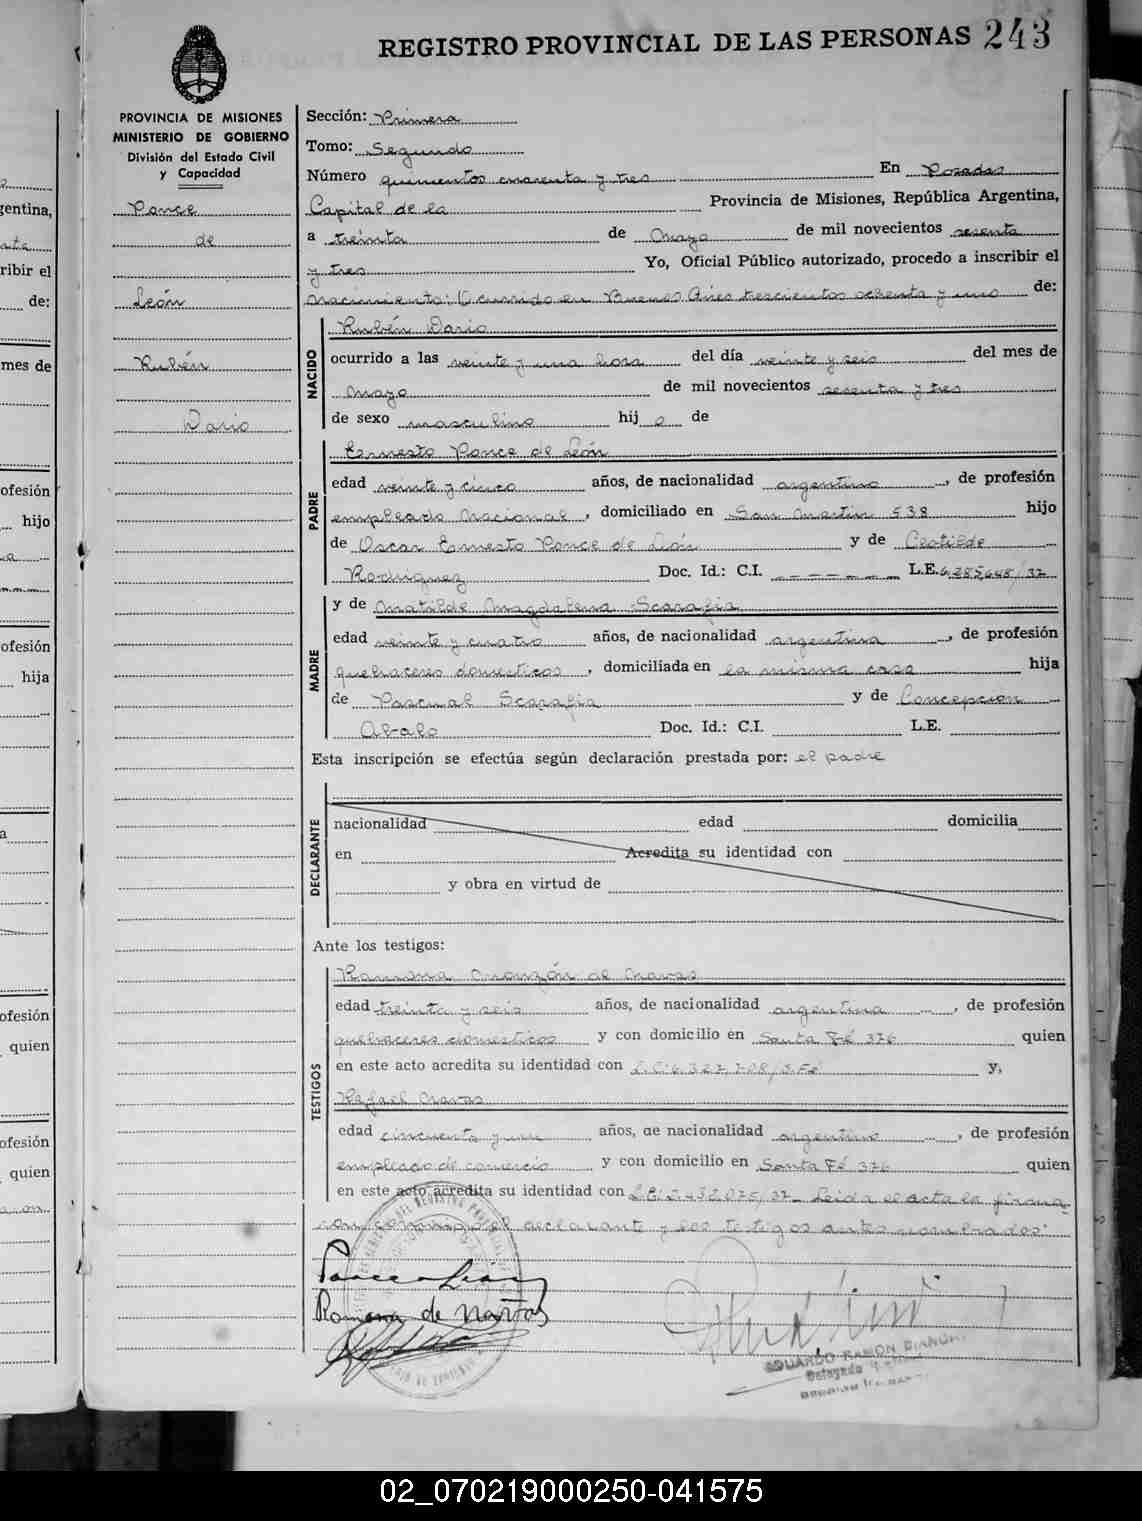 REGISTRO PROVINCIAL DE LAS PERSONAS 243
PROVINCIA DE MISIONES
MINISTERIO DE GOBIERNO
División del Estado Civil
y Capacidad
Ponce
de
León
Rubén
Dario
Sección: Primera
Tomo: Segundo
Número quinientos cuarenta y tres En Posadas
Capital de la Provincia de Misiones, República Argentina,
a treinta de mayo de mil novecientos sesenta
y tres Yo, Oficial Público autorizado, procedo a inscribir el
nacimiento: Ocurrido en Buenos Aires trescientos ochenta y uno de:
NACIDO
Rubén Dario
ocurrido a las veinte y una hora del día veinte y seis del mes de
mayo de mil novecientos sesenta y tres
de sexo masculino hij o de
PADRE
Ernesto Ponce de León
edad veinte y cinco años, de nacionalidad argentino, de profesión
empleado Nacional, domiciliado en San Martin 538 hijo
de Oscar Ernesto Ponce de León y de Clotilde
Rodriguez Doc. Id.: C.I. L.E. 6.285.648/37
MADRE
y de Matilde Magdalena Scarafia
edad veinte y cuatro años, de nacionalidad argentina, de profesión
quehaceres domesticos, domiciliada en la misma casa hija
de Pascual Scarafia y de Concepcion
Abalo Doc. Id.: C.I. L.E.
Esta inscripción se efectúa según declaración prestada por: el padre
DECLARANTE
nacionalidad edad domicilia
en Acredita su identidad con
y obra en virtud de
Ante los testigos:
TESTIGOS
Ramona de Navas
edad treinta y seis años, de nacionalidad argentina, de profesión
quehaceres domesticos y con domicilio en Santa Fé 376 quien
en este acto acredita su identidad con L.C. 6.327.708/S.Fé y,
Rafael Navas
edad cincuenta y un años, de nacionalidad argentino, de profesión
empleado de comercio y con domicilio en Santa Fé 376 quien
en este acto acredita su identidad con L.E. 2.432.075/37_ Leida el acta la firma
con conmigo el declarante y los testigos antes nombrados.
Ponce León
Ramona de Navas
EDUARDO RAMON
Delegado
02_070219000250-041575